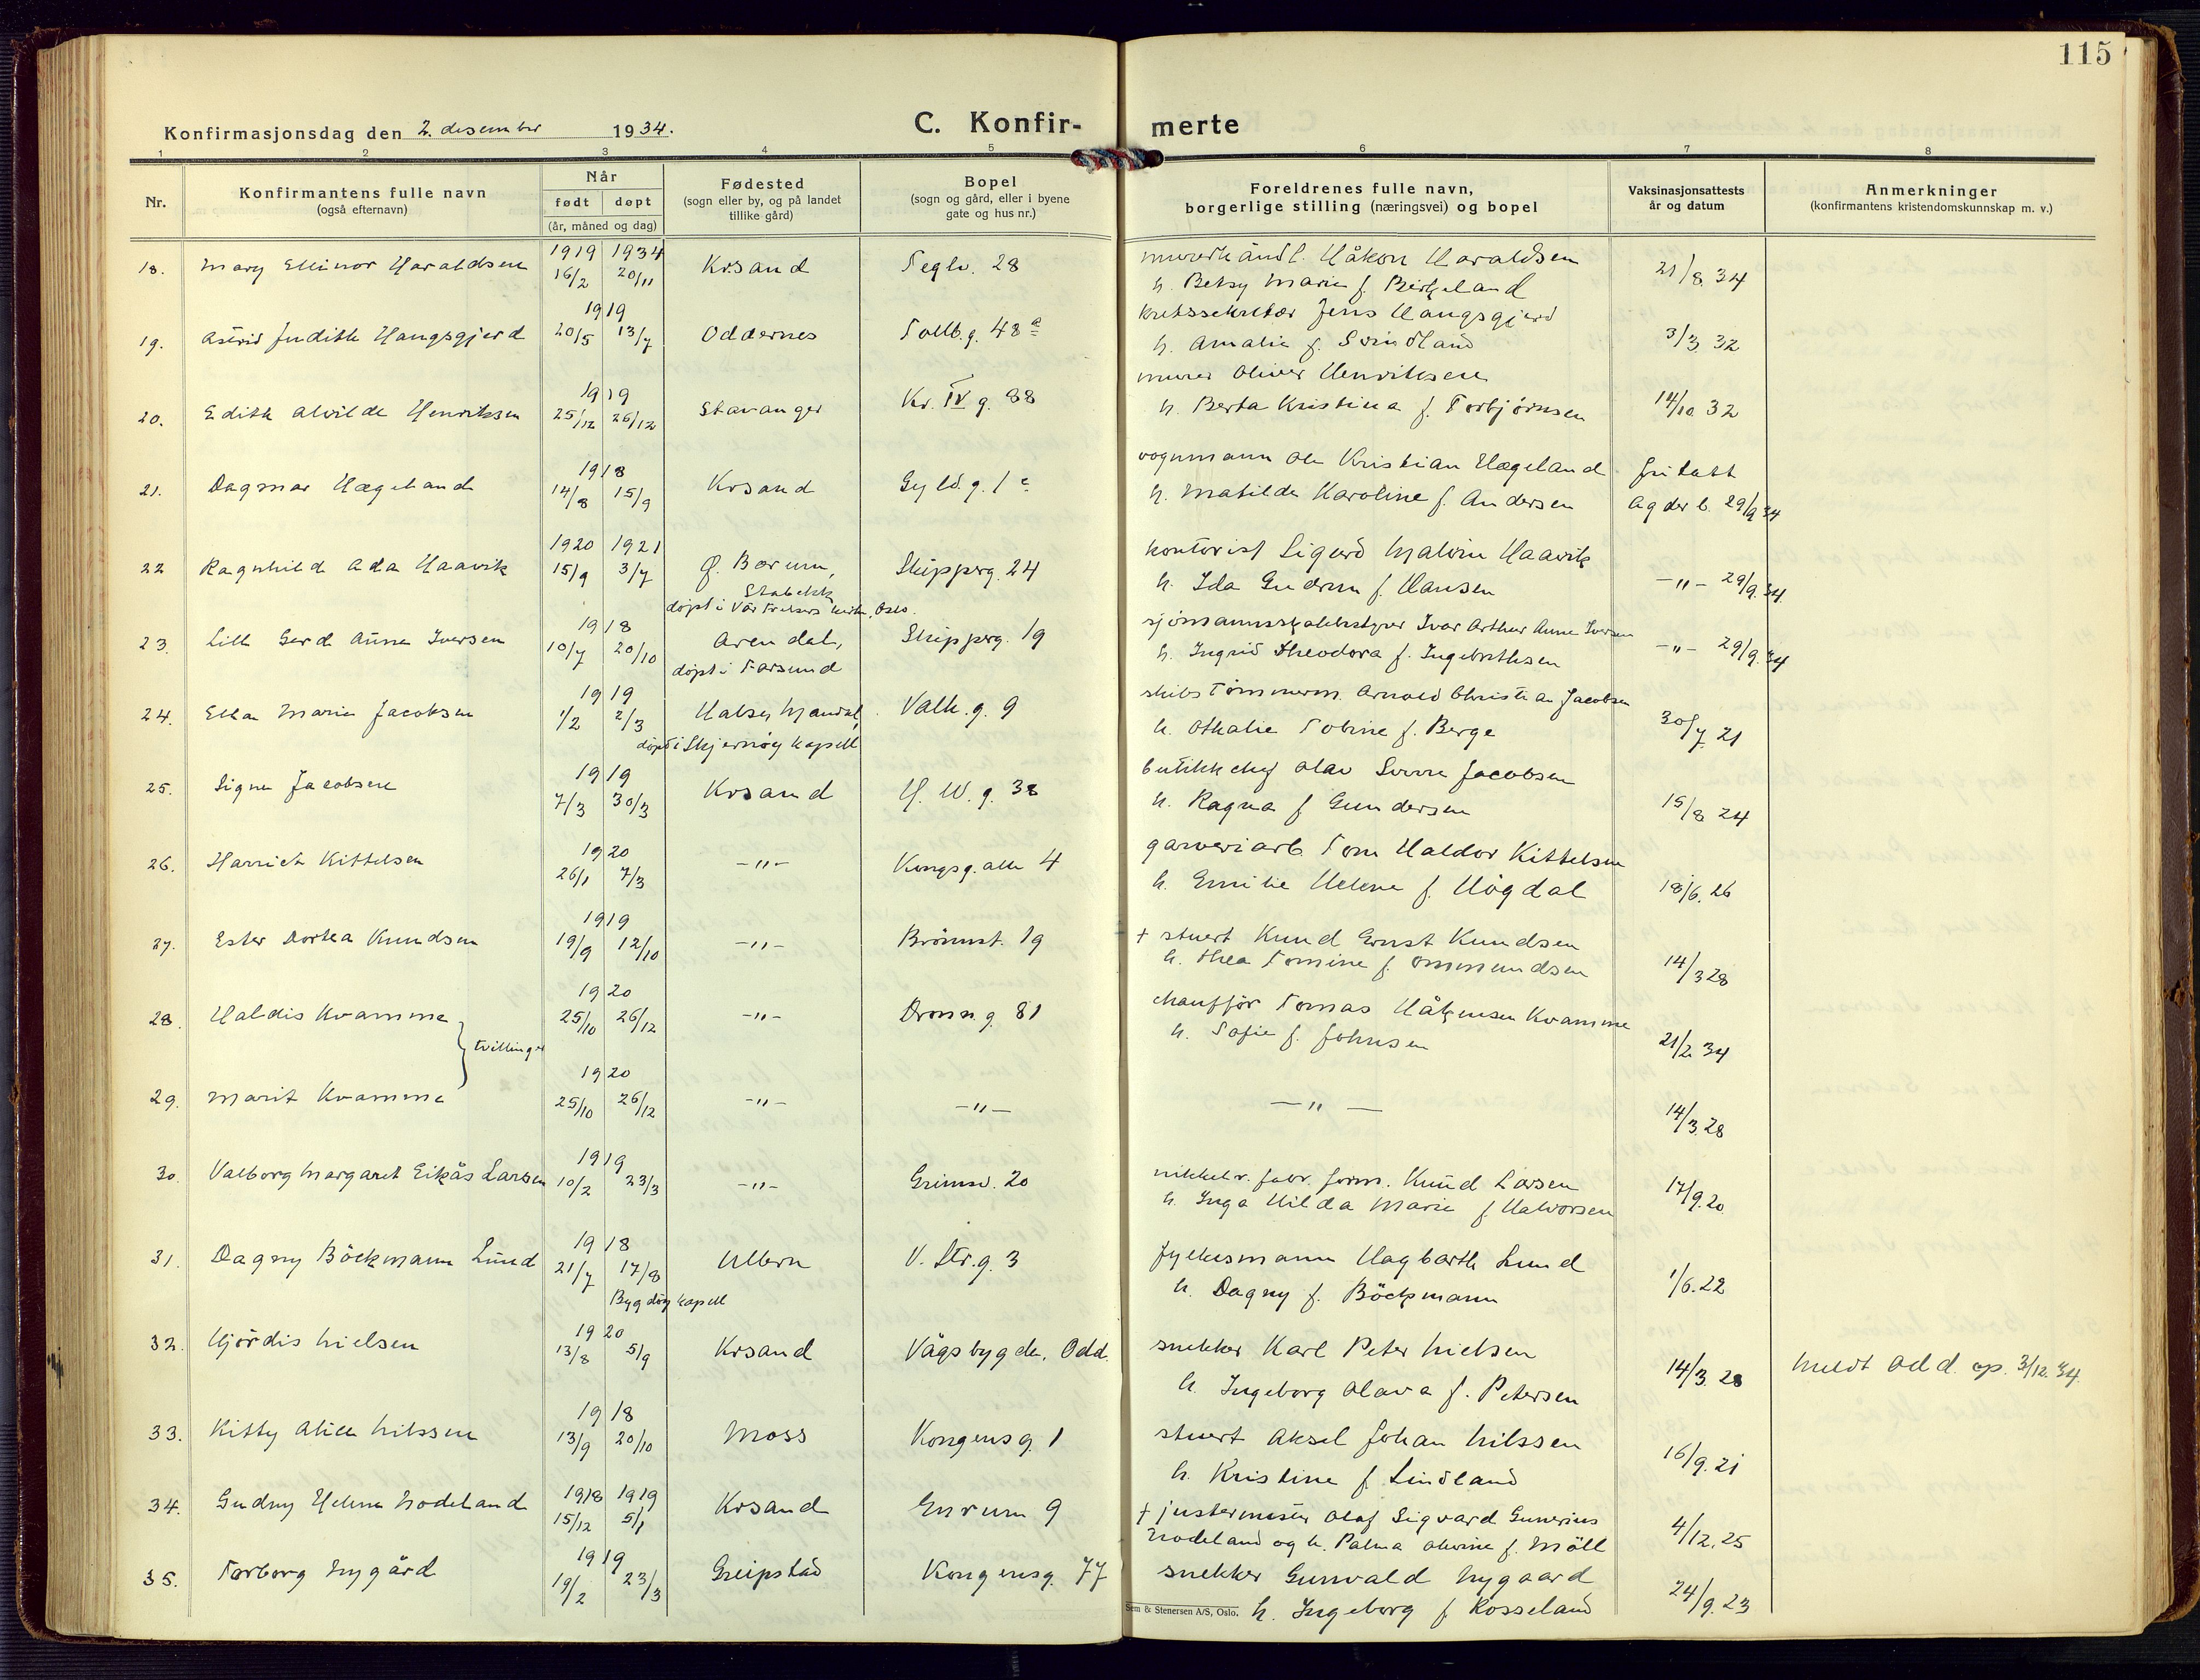 115
Konfirmasjonsdag den 2. desember 1934.
C. Konfir- merte
1 2 3 4 5 6 7 8
Nr.
Konfirmantens fulle navn
(også efternavn)
Når
født døpt
(år, måned og dag)
Fødested
(sogn eller by, og på landet
tillike gård)
Bopel
(sogn og gård, eller i byene
gate og hus nr.)
Foreldrenes fulle navn,
borgerlige stilling (næringsvei) og bopel
Vaksinasjonsattests
år og datum
Anmerkninger
(konfirmantens kristendomskunnskap m. v.)
1919 1934 murerhåndl. Håkon Haraldsen
18. Mary Ellinor Haraldsen 16/2 20/11 Krsand Teglv. 28 h. Betsy Marie f. Birkeland 21/8 34
1919 kretssekretær Jens Haugsgjerd
19. Astrid Judith Haugsgjerd 20/5 13/7 Oddernes Tollb.g. 48 a h. Amalie f. Svindland 3/3 32
1919 murer Oliver Henriksen
20. Edith Alvilde Henriksen 25/12 26/12 Stavanger Kr. IV g. 88 h. Berta Kristina f. Torbjørnsen 14/10 32
1918 vognmann Ole Kristian Hægeland fritatt
21. Dagmar Hægeland 14/8 15/9 Krsand Gyld.g. 1 c h. Matilde Karoline f. Andersen Agder b. 29/9 34
1920 1921 kontorist Sigurd Hjalvin Haavik
22 Ragnhild Ada Haavik 15/9 3/7 Ø. Bærum, Skipperg. 24 h. Ida Gudrun f. Hansen -"- 29/9. 34
Stabekk
døpt i Vår Frelsers kirke, Oslo.
1918 sjømannsskolebestyrer Ivar Arthur Anne Iversen
23. Lill Gerd Anne Iversen 10/7 20/10 Arendal, Skipperg. 19 h. Ingrid Theodora f. Ingebrethsen -"- 29/9. 34
døpt i Farsund
1919 skibstømmerm. Arnold Christian Jacobsen
24. Ellen Marie Jacobsen 1/2 2/3 Halse, Mandal, Valh. g. 9 h. Othalie Tobine f. Berge 30/7 21
døpt i Skjernøy kapell
1919 butikkchef Olav Sverre Jacobsen
25. Signe Jacobsen 7/3 30/3 Krsand H. W. g. 38 h. Ragna f. Gundersen 15/8 24
1920 garveriarb. Tom Haldor Kittelsen
26. Harriet Kittelsen 26/1 7/3 -"- Kongsg. alle 4 h. Emilie Helene f. Høgdal 18/6. 26
1919 + stuert Knud Ernst Knudsen
27. Ester Dortea Knudsen 19/9 12/10 -"- Brönnst. 19 h. Thea Tomine f. Ommundsen 14/3 28
1920 chauffør Tomas Håkensen Kvamme
28. Haldis Kvamme 25/10 26/12 -"- Dronn. g. 81 h. Sofie f. Johnsen 21/2. 34
tvillinger
1920
29. Marit Kvamme 25/10 26/12 -"- -"- -"- 14/3. 28
1919 nikkelr. fabr. form. Knud Larsen
30. Valborg Margaret Eikås Larsen 10/2 23/3 -"- Grimsv. 20 h. Inga Hilda Marie f. Halvorsen 17/9. 20
1918 fylkesmann Hagbarth Lund
31. Dagny Böckmann Lund 21/7 17/8 Ullern V. Str.g. 3 h. Dagny f. Böckmann 1/6. 22
Bygdøy kapell
1920 snekker Karl Peter Nielsen
32. Hjördis Nielsen 13/8 5/9 Krsand Vågsbygda, Odd. h. Ingeborg Olava f. Petersen 14/3. 28 Meldt Odd. sp. 3/12. 34.
1918 stuert Aksel Johan Nilssen
33. Kitty Alice Nilssen 13/9 20/10 Moss Kongensg. 1 h. Kristine f. Lindland 16/9. 21
1918 1919 + justermester Olaf Sigvard Gunerius
34. Gudny Helene Nodeland 15/12 5/1 Krsand Enrum 9 Nodeland og h. Palma Alvine f. Möll 4/12. 25
1919 snekker Gunvald Nygaard
35. Torborg Nygård 19/2 23/3 Greipstad Kongensg. 77 h. Ingeborg f. Rosseland 24/9. 23
Sem & Stenersen A/S, Oslo.